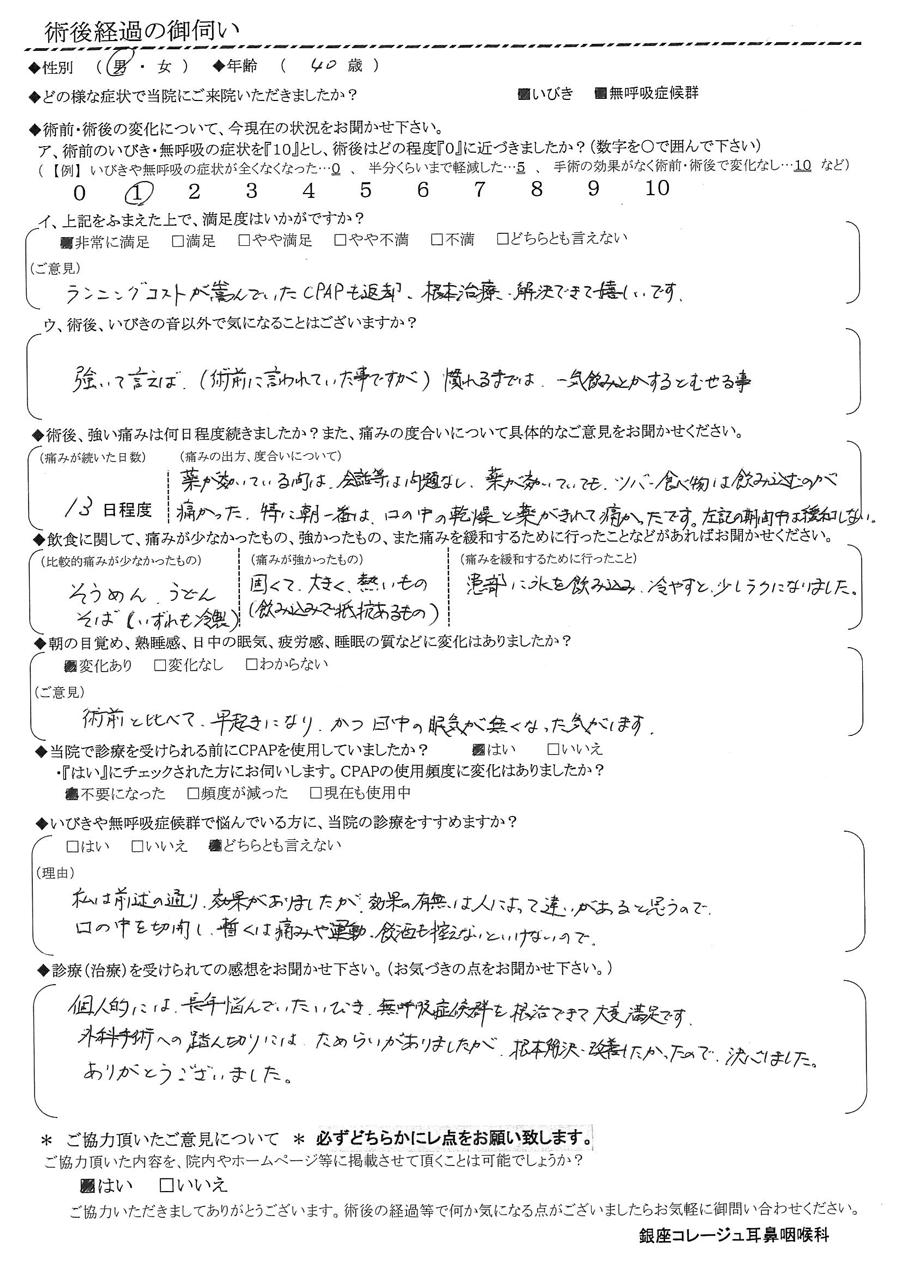 術後経過の御伺い
◆性別 ( 男 ・ 女 ) ◆年齢 ( 40 歳 )
◆どの様な症状で当院にご来院いただきましたか? ■いびき ■無呼吸症候群
◆術前・術後の変化について、今現在の状況をお聞かせ下さい。
ア、術前のいびき・無呼吸の症状を『10』とし、術後はどの程度『0』に近づきましたか?(数字を○で囲んで下さい)
(【例】いびきや無呼吸の症状が全くなくなった…0 、 半分くらいまで軽減した…5 、 手術の効果がなく術前・術後で変化なし…10 など)
0 1 2 3 4 5 6 7 8 9 10
イ、上記をふまえた上で、満足度はいかがですか?
■非常に満足 □満足 □やや満足 □やや不満 □不満 □どちらとも言えない
(ご意見)
ランニングコストが嵩んでいたCPAPも返却、根本治療・解決できて嬉しいです。
ウ、術後、いびきの音以外で気になることはございますか?
強いて言えば、(術前に言われていた事ですが)慣れるまでは、一気飲みとかするとむせる事
◆術後、強い痛みは何日程度続きましたか?また、痛みの度合いについて具体的なご意見をお聞かせください。
(痛みが続いた日数) (痛みの出方、度合いについて)
薬が効いている間は、会話等は問題なし、薬が効いていても、ツバ・食べ物は飲み込むのが
13 日程度 痛かった。特に朝一番は、口の中の乾燥と薬がきれて痛かったです。左記の期間中は緩和しない。
◆飲食に関して、痛みが少なかったもの、強かったもの、また痛みを緩和するために行ったことなどがあればお聞かせください。
(比較的痛みが少なかったもの) (痛みが強かったもの) (痛みを緩和するために行ったこと)
そうめん、うどん 固くて、大きく、熱いもの 患部に氷を飲み込み、冷やすと、少しラクになりました。
そば(いずれも冷製) (飲み込みで抵抗あるもの)
◆朝の目覚め、熟睡感、日中の眠気、疲労感、睡眠の質などに変化はありましたか?
■変化あり □変化なし □わからない
(ご意見)
術前と比べて、早起きになり、かつ日中の眠気が無くなった気がします。
◆当院で診療を受けられる前にCPAPを使用していましたか? ■はい □いいえ
・『はい』にチェックされた方にお伺いします。CPAPの使用頻度に変化はありましたか?
■不要になった □頻度が減った □現在も使用中
◆いびきや無呼吸症候群で悩んでいる方に、当院の診療をすすめますか?
□はい □いいえ ■どちらとも言えない
(理由)
私は前述の通り、効果がありましたが、効果の有無は人によって違いがあると思うので。
口の中を切開し、暫くは痛みや運動、飲酒も控えないといけないので。
◆診療(治療)を受けられての感想をお聞かせ下さい。(お気づきの点をお聞かせ下さい。)
個人的には、長年悩んでいたいびき、無呼吸症候群を根治できて大変満足です。
外科手術への踏ん切りには、ためらいがありましたが、根本解決・改善したかったので、決心しました。
ありがとうございました。
* ご協力頂いたご意見について * 必ずどちらかにレ点をお願い致します。
ご協力頂いた内容を、院内やホームページ等に掲載させて頂くことは可能でしょうか?
■はい □いいえ
ご協力いただきましてありがとうございます。術後の経過等で何か気になる点がございましたらお気軽に御問い合わせください。
銀座コレージュ耳鼻咽喉科